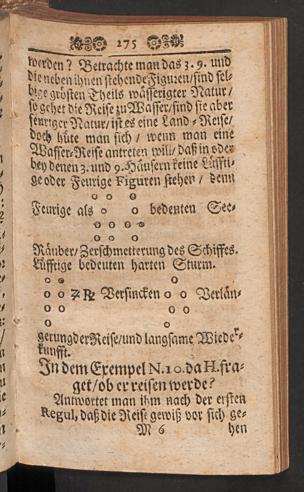 175
werden? Betrachte man das 3. 9. und
die neben ihnen stehende Figuren/sind sel-
bige grösten Theils wässerigter Natur/
so gehet die Reise zu Wasser/sind sie aber
feuriger Natur/ist es eine Land-Reise/
doch hüte man sich / wenn man eine
Wasser-Reise antreten will/ daß in oder
bey denen 3. und 9. Häusern keine Lüffti-
ge oder Feurige Figuren stehen / denn
Feurige als bedeuten See-
Räuber/Zerschmetterung des Schiffes.
Lüfftige bedeuten harten Sturm.
Versincken Verlän-
gerung der Reise/und langsame Wieder-
kunfft.
In dem Exempel N. 10. da H. fra-
get/ob er reisen werde?
Antwortet man ihm nach der ersten
Regul, daß die Reise gewiß vor sich ge-
M 6 hen